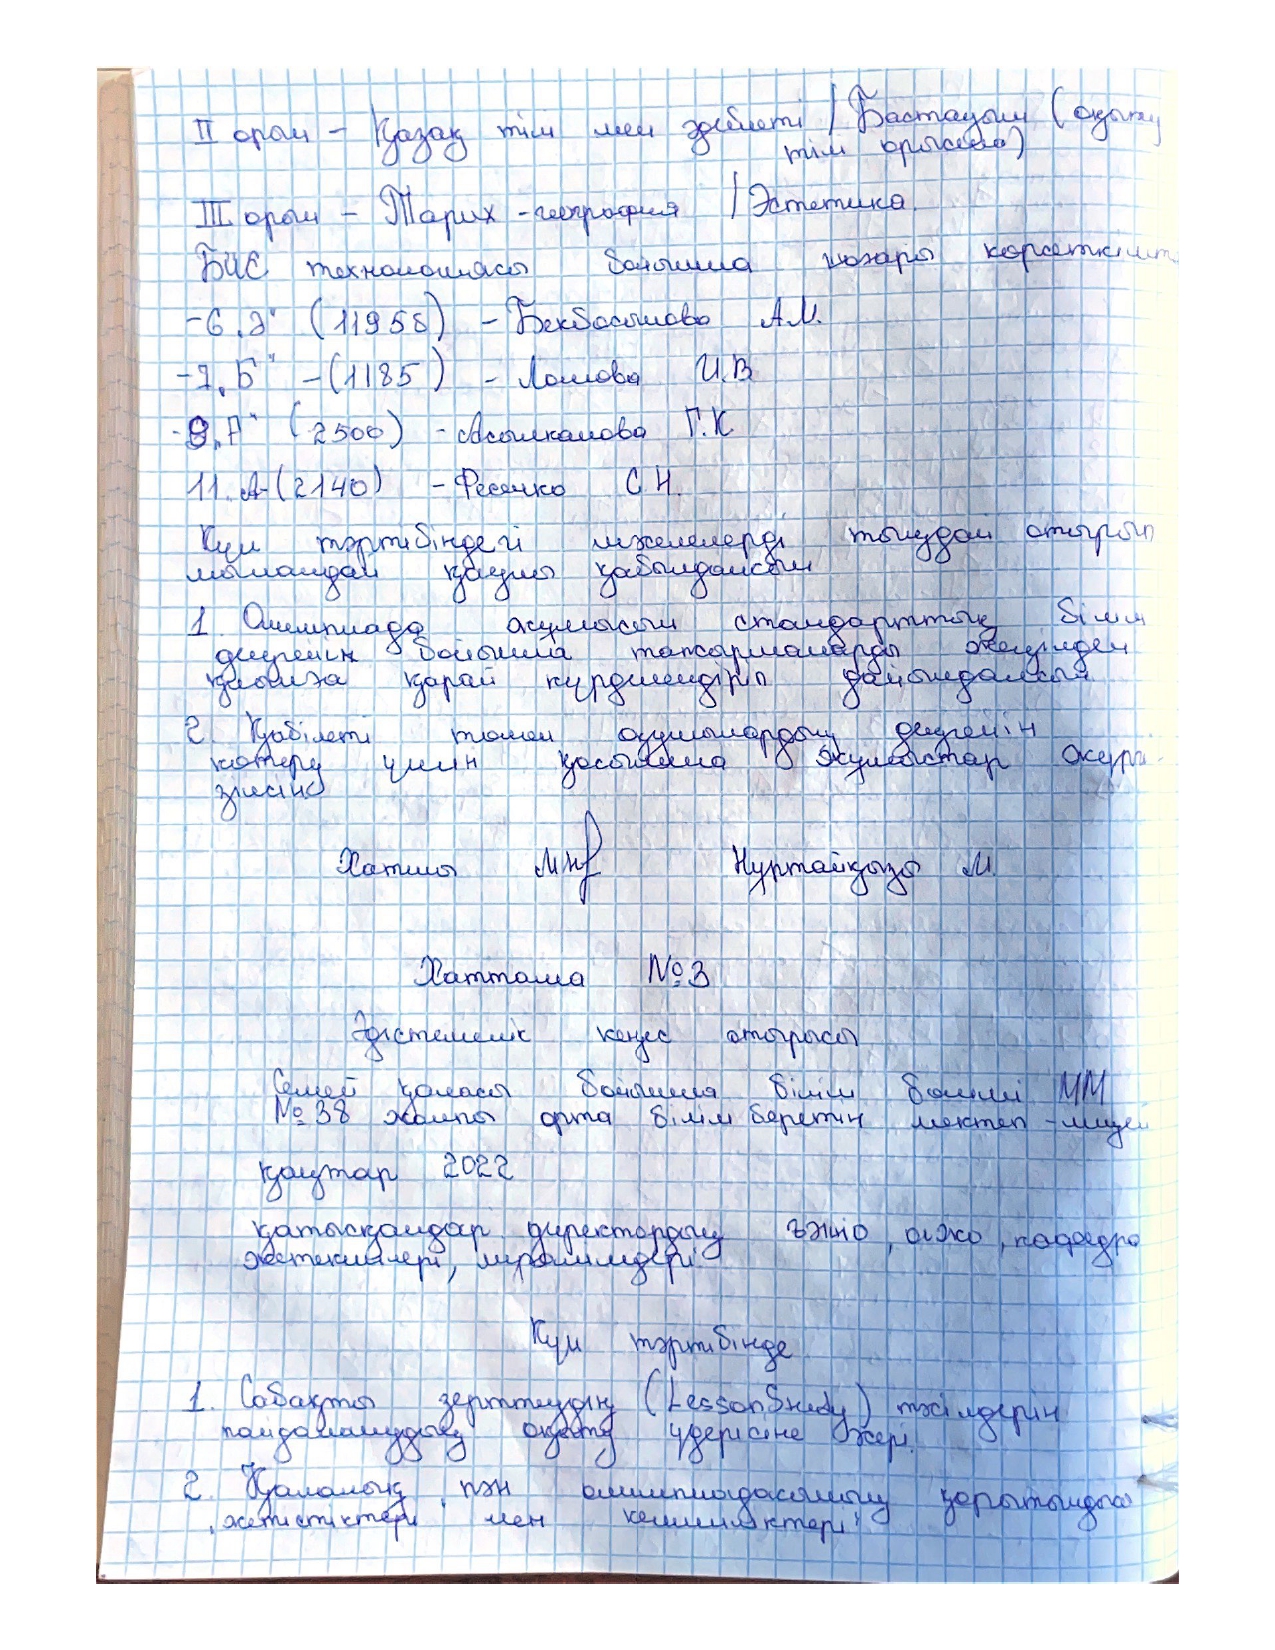 II орын – Қазақ тілі мен әдебиеті / Бастауыш (оқыту
тілі орысша)
III орын – Тарих - география / Эстетика.
БиС технологиясы бойынша жоғары көрсеткішт
- 6 „Э" (11958) – Бекбосынова А.М.
- 7 „Б" – (1185) – Ломова И.В
- 9 „А" (2500) – Асылканова Г.К
11. А (2140) – Фесенко С.Н.
Күн тәртібіндегі мәселелерді тыңдай отырып
мынандай қаулы қабылдансын
1. Олимпиада жұмысын стандарттық білім
деңгейін бойынша тапсырмаларды жеңілден
қиынға қарай күрделендіріп дайындалсын.
2. Қабілеті төмен оқушылардың деңгейін
көтеру үшін қосымша жұмыстар жүргі-
зілсін
Хатшы Нұртайқызы М.
Хаттама № 3
Әдістемелік кеңес отырысы
Семей қаласы бойынша білім бөлімі ММ
№ 38 жалпы орта білім беретін мектеп - лицей
қаңтар 2022
қатысқандар директордың , кафедра
жетекшілері, мұғалімдері
Күн тәртібінде
1. Сабақты зерттеудің (Lesson Study) тәсілдерін
пайдаланудың оқыту үдерісіне әсері.
2. Қалалық пән олимпиадасының қорытындысы
, жетістіктері мен кемшіліктері